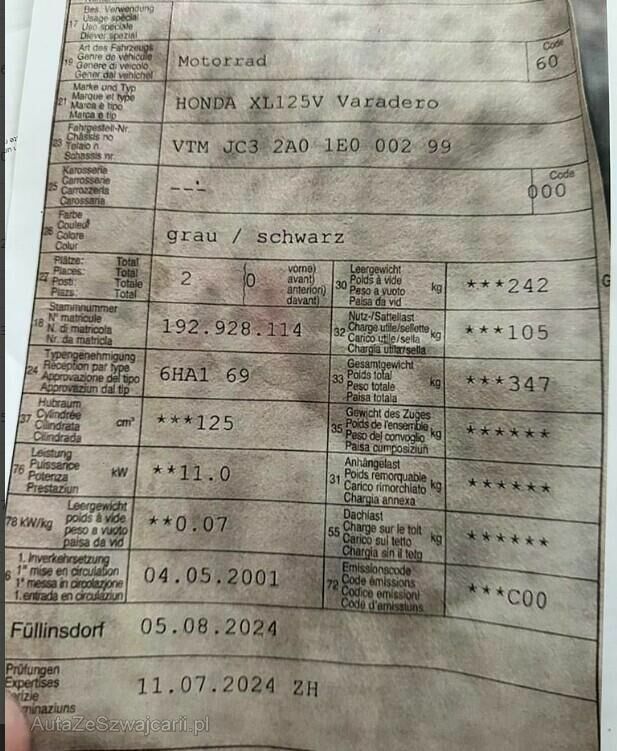 Bes. Verwendung
Usage spécial
17 Uso speciale
Diever spezial
Art des Fahrzeugs
19 Genre de véhicule
Genere di veicolo
Gener dal vehichel
Motorrad
Code
60
Marke und Typ
21 Marque et type
Marca e tipo
Marca e tip
HONDA XL125V Varadero
Fahrgestell-Nr.
23 Châssis no
Telaio n.
Schassis nr.
VTM JC3 2A0 1E0 002 99
Karosserie
25 Carrosserie
Carrozzeria
Carossaria
---
Code
000
Farbe
26 Couleur
Colore
Colur
grau / schwarz
Plätze: Total
27 Places: Total
Posti: Totale
Plazs: Total
2
0
vorne)
avant)
anteriori)
davant)
30 Leergewicht
Poids à vide
Peso a vuoto
Paisa da vid
kg
***242
G
Stammnummer
18 N° matricule
N. di matricola
Nr. da matricla
192.928.114
32 Nutz-/Sattellast
Charge utile/sellette
Carico utile/sella
Chargia utila/sella
kg
***105
Typengenehmigung
24 Réception par type
Approvazione del tipo
Approvaziun dal tip
6HA1 69
33 Gesamtgewicht
Poids total
Peso totale
Paisa totala
kg
***347
Hubraum
37 Cylindrée
Cilindrata
Cilindrada
cm³
***125
35 Gewicht des Zuges
Poids de l'ensemble
Peso del convoglio
Paisa cumposiziun
kg
******
Leistung
76 Puissance
Potenza
Prestaziun
kW
**11.0
31 Anhängelast
Poids remorquable
Carico rimorchiato
Chargia annexa
kg
******
78 kW/kg
Leergewicht
poids à vide
peso a vuoto
paisa da vid
**0.07
55 Dachlast
Charge sur le toit
Carico sul tetto
Chargia sin il tetg
kg
******
6 1. Inverkehrsetzung
1re mise en circulation
1a messa in circolazione
1. entrada en circulaziun
04.05.2001
72 Emissionscode
Code émissions
Codice emissioni
Code d'emissiuns
***C00
Füllinsdorf 05.08.2024
Prüfungen
Expertises
11.07.2024 ZH
AutaZeSzwajcarii.pl